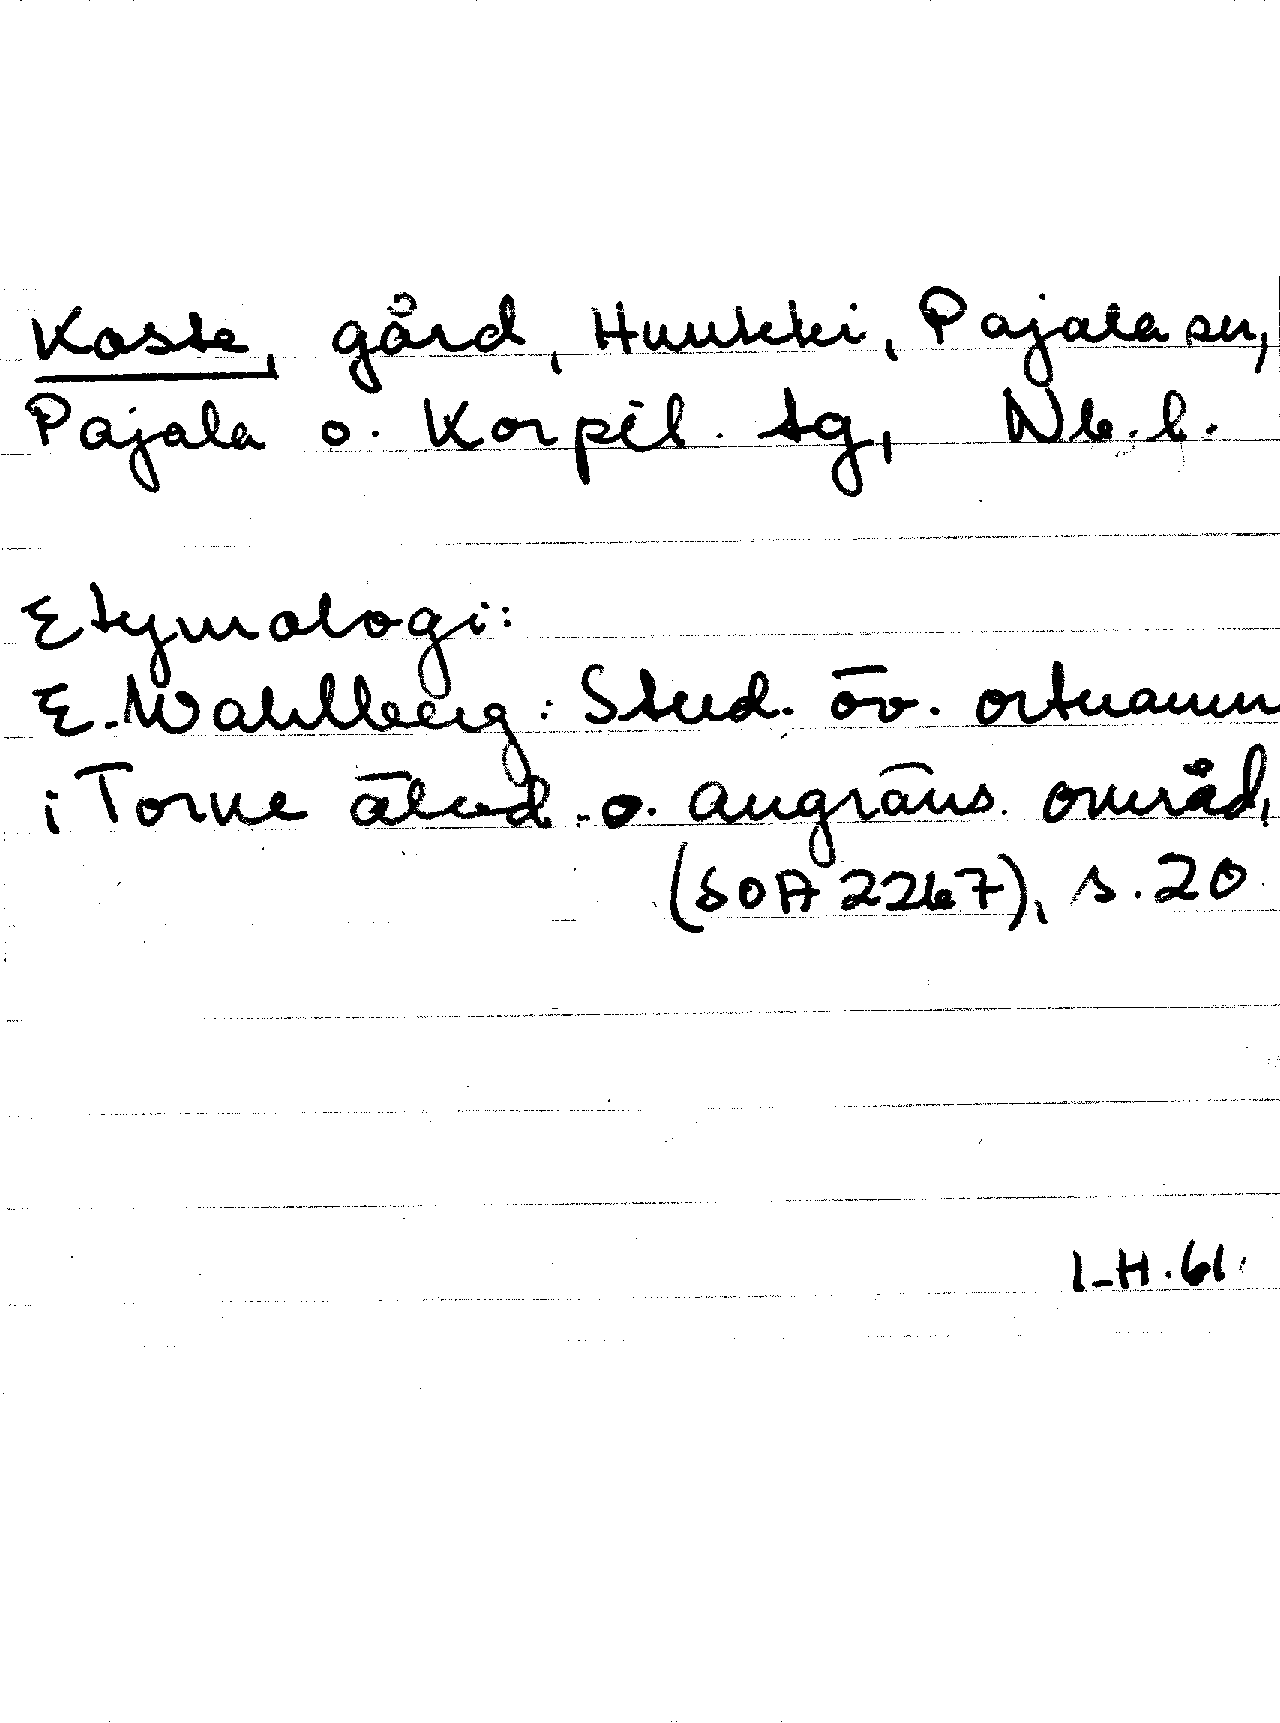 Koste, gård, Huukki, Pajala sn,
Pajala o. Korpil. tg, Nb.l.
Etymologi:
E. Wahlberg: Stud. öv. ortnamn
i Torne älvd. o. angräns. områd,
(SOA 2267), s. 20
L-H. 61.